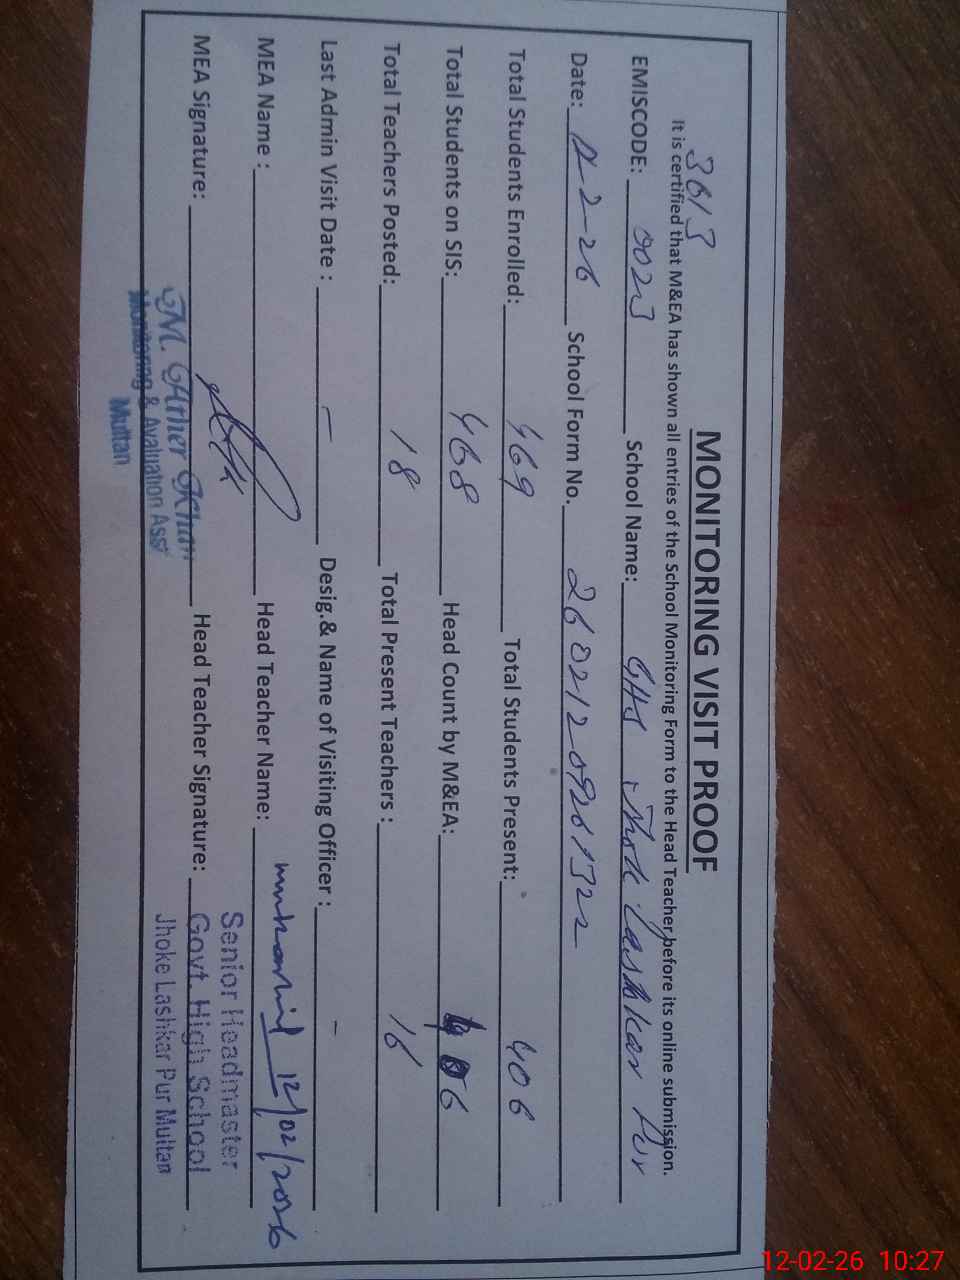 MONITORING VISIT PROOF
It is certified that M&EA has shown all entries of the School Monitoring Form to the Head Teacher before its online submission.
3613
EMISCODE: 0023 School Name: GHS Jhok Lashkar Pur
Date: 12-2-26 School Form No. 26021209261322
Total Students Enrolled: 469 Total Students Present: 406
Total Students on SIS: 468 Head Count by M&EA: 406
Total Teachers Posted: 18 Total Present Teachers : 16
Last Admin Visit Date : – Desig.& Name of Visiting Officer : –
MEA Name : Head Teacher Name: 12/02/2026
MEA Signature: Head Teacher Signature:
M. Ather Khan
Monitoring & Avaluation Asst
Multan
Senior Headmaster
Govt. High School
Jhoke Lashkar Pur Multan
12-02-26 10:27